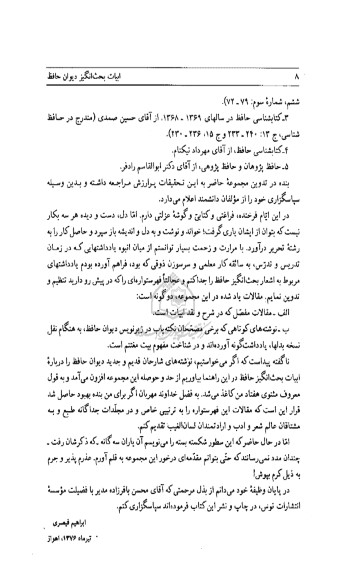 ۸ ابیات بحث‌انگیز دیوان حافظ
ششم، شمارهٔ سوم: ۷۹ ـ ۷۲).
۳ـ کتابشناسی حافظ در سالهای ۱۳۶۹ ـ ۱۳۶۸، از آقای حسین صمدی (مندرج در حافظ
شناسی، ج ۱۳: ۲۴۰ ـ ۲۳۳ و ج ۱۵، ۲۳۶ ـ ۲۳۰).
۴ـ کتابشناسی حافظ، از آقای مهرداد نیکنام.
۵ـ حافظ پژوهان و حافظ پژوهی، از آقای دکتر ابوالقاسم رادفر.
بنده در تدوین مجموعهٔ حاضر به این تحقیقات پرارزش مراجعه داشته و بدین وسیله
سپاسگزاری خود را از مؤلفان دانشمند اعلام می‌دارد.
در این ایّام فرخنده، فراغتی و کتابی و گوشهٔ عزلتی دارم. امّا، دل، دست و دیده هر سه بکار
نیست که بتوان از ایشان یاری گرفت؛ خواند و نوشت و به دل و اندیشه باز سپرد و حاصل کار را به
رشتهٔ تحریر درآورد. با مرارت و زحمت بسیار توانستم از میان انبوه یادداشتهایی که در زمان
تدریس و تدرّس، به سائقهٔ کار معلمی و سرسوزن ذوقی که بود، فراهم آورده بودم یادداشتهای
مربوط به اشعار بحث‌انگیز حافظ را جدا کنم و عجالتاً فهرستواره‌ای را که در پیش رو دارید تنظیم و
تدوین نمایم. مقالات یاد شده در این مجموعه، دو گونه است:
الف ـ مقالات مفصّل که در شرح و نقد ابیات است.
ب ـ نوشته‌های کوتاهی که برخی مصحّحان نکته‌یاب در زیرنویس دیوان حافظ، به هنگام نقل
نسخه بدلها، یادداشتگونه آورده‌اند و در شناخت مفهوم بیت مغتنم است.
ناگفته پیداست که اگر می‌خواستیم، نوشته‌های شارحان قدیم و جدید دیوان حافظ را دربارهٔ
ابیات بحث‌انگیز حافظ در این راهنما بیاوریم از حد و حوصله این مجموعه افزون می‌آمد و به قول
معروف مثنوی هفتاد من کاغذ می‌شد. به فضل خداوند مهربان اگر برای من بنده بهبود حاصل شد
قرار این است که مقالات این فهرستواره را به ترتیبی خاص و در مجلّدات جداگانه طبع و به
مشتاقان عالم شعر و ادب و ارادتمندان لسان‌الغیب تقدیم کنم.
امّا در حال حاضر که این سطور شکسته بسته را می‌نویسم آن یاران سه گانه ـ که ذکرشان رفت ـ
چندان مدد نمی‌رسانند که حتّی بتوانم مقدّمه‌ای درخور این مجموعه به قلم آورم. عذرم پذیر و جرم
به ذیل کرم بپوش!
در پایان وظیفهٔ خود می‌دانم از بذل مرحمتی که آقای محسن باقرزاده مدیر با فضیلت مؤسسهٔ
انتشارات توس، در چاپ و نشر این کتاب فرموده‌اند سپاسگزاری کنم.
ابراهیم قیصری
تیرماه ۱۳۷۶، اهواز